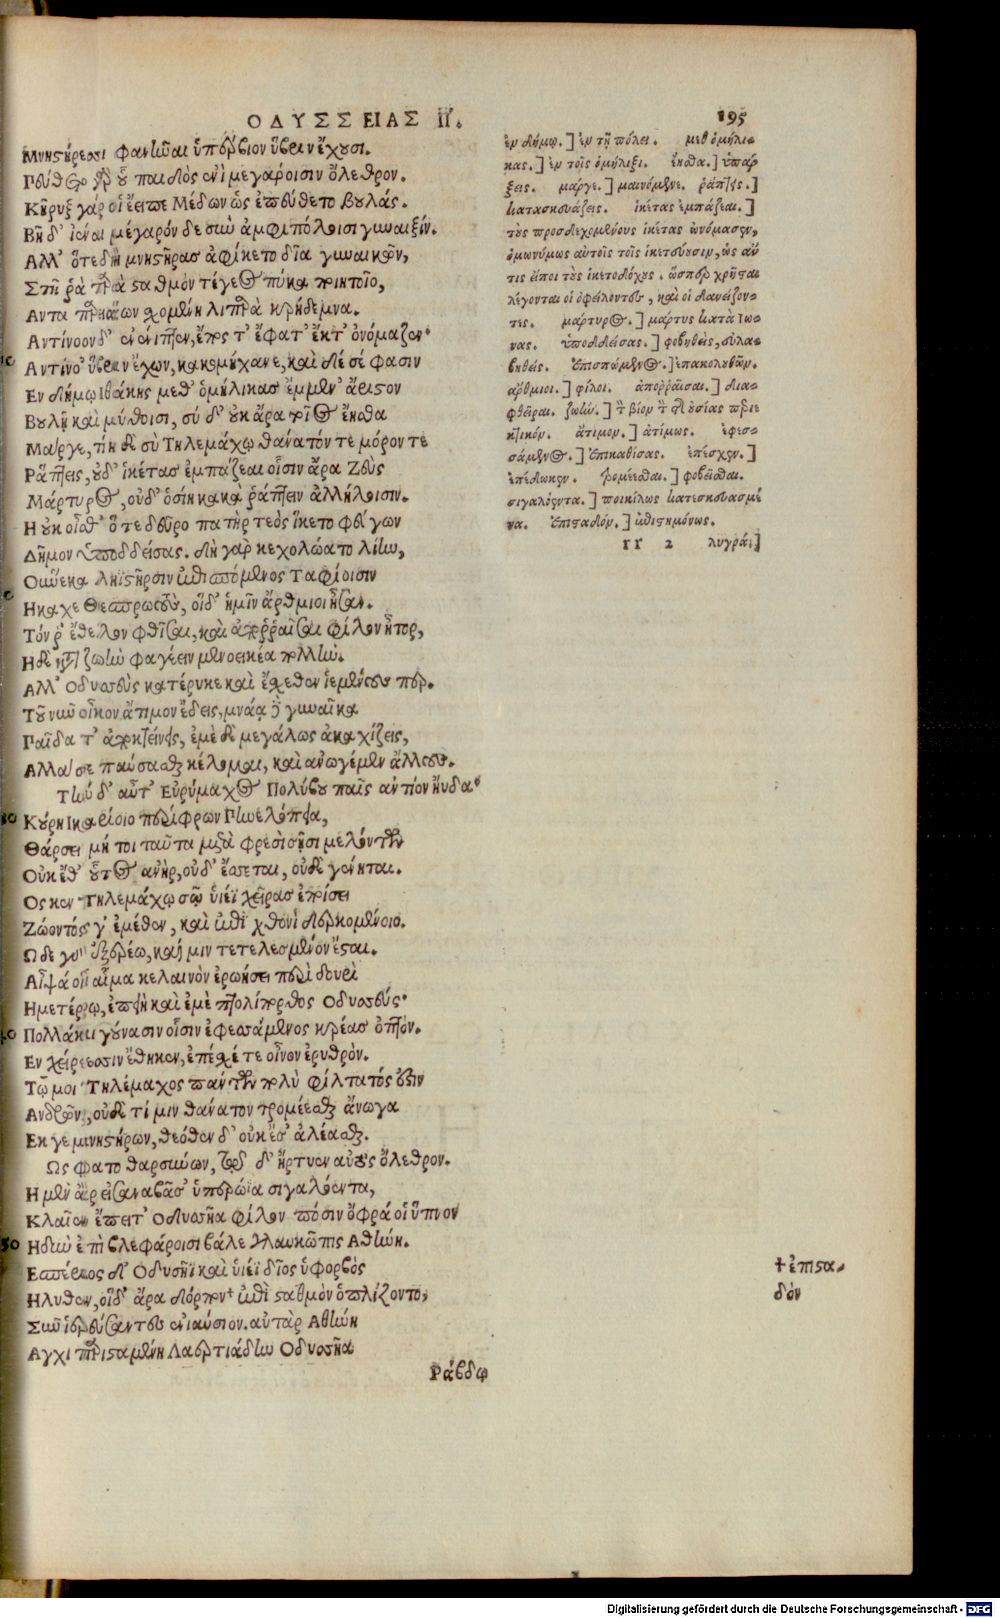 ΟΔΥΣΣΕΙΑΣ Π.
195
Μνηστήρεσσι φανῆναι ὑπέρβιον ὕβριν ἔχουσι.
Πεύθετο γὰρ οὗ παιδὸς ἐνὶ μεγάροισιν ὄλεθρον.
Κῆρυξ γάρ οἱ ἔειπε Μέδων ὡς ἐπεύθετο βουλάς.
Βῆ δ' ἰέναι μέγαρόν δε σὺν ἀμφιπόλοισι γυναιξίν.
Αλλ' ὅτε δὴ μνηστῆρας ἀφίκετο δῖα γυναικῶν,
Στῆ ῥὰ παρὰ σταθμὸν τέγεος πύκα ποιητοῖο,
Αντα παρειάων σχομένη λιπαρὰ κρήδεμνα.
Αντίνοον δ' ἐνένιπεν, ἔπος τ' ἔφατ' ἔκ τ' ὀνόμαζεν·
Αντίνο' ὕβριν ἔχων, κακομήχανε, καὶ δέ σέ φασιν
Εν δήμῳ Ιθάκης μεθ' ὁμήλικας ἔμμεν' ἄριστον
Βουλῇ καὶ μύθοισι, σύ δ' οὐκ ἄρα τοῖος ἔησθα
Μάργε, τίη δὲ σὺ Τηλεμάχῳ θάνατόν τε μόρον τε
Ράπτεις, οὐδ' ἱκέτας ἐμπάζεαι οἷσιν ἄρα Ζεὺς
Μάρτυρος, οὐδ' ὁσίη κακὰ ῥάπτειν ἀλλήλοισιν.
Η οὐκ οἶσθ' ὅτε δεῦρο πατὴρ τεὸς ἵκετο φεύγων
Δῆμον ὑποδδείσας. δὴ γὰρ κεχολώατο λίην,
Οὕνεκα ληϊστῆρσιν ἐπισπόμενος Ταφίοισιν
Ηκαχε Θεσπρωτοὺς, οἱ δ' ἡμῖν ἄρθμιοι ἦσαν.
Τόν ῥ' ἔθελον φθῖσαι, καὶ ἀπορραῖσαι φίλον ἦτορ,
Ηδὲ κατὰ ζωὴν φαγέειν μενοεικέα πολλήν.
Αλλ' Οδυσεὺς κατέρυκε καὶ ἔσχεθεν ἱεμένους περ.
Τοῦ νῦν οἶκον ἄτιμον ἔδεις, μνάᾳ δὲ γυναῖκα
Παῖδα τ' ἀποκτείνεις, ἐμὲ δὲ μεγάλως ἀκαχίζεις,
Αλλά σε παύσασθαι κέλομαι, καὶ ἀνωγέμεν ἄλλους.
Τὴν δ' αὖτ' Εὐρύμαχος Πολύβου παῖς ἀντίον ηὔδα·
Κούρη Ικαρίοιο περίφρων Πηνελόπεια,
Θάρσει μή τοι ταῦτα μετὰ φρεσὶ σῇσι μελόντων
Οὐκ ἔσθ' οὗτος ἀνὴρ, οὐδ' ἔσσεται, οὐδὲ γένηται.
Ος κεν Τηλεμάχῳ σῷ υἱέϊ χεῖρας ἐποίσει
Ζώοντός γ' ἐμέθεν, καὶ ἐπὶ χθονὶ δερκομένοιο.
Ωδε γὰρ ἐξερέω, καί μιν τετελεσμένον ἔσται.
Αἶψά οἱ αἷμα κελαινὸν ἐρωήσει περὶ δουρὶ
Ημετέρῳ, ἐπειὴ καὶ ἐμὲ πτολίπορθος Οδυσσεύς·
Πολλάκι γούνασιν οἷσιν ἐφεσσάμενος κρέας ὀπτόν.
Εν χείρεσσιν ἔθηκεν, ἐπέσχέ τε οἶνον ἐρυθρόν.
Τῷ μοι Τηλέμαχος πάντων πολὺ φίλτατός ἐστιν
Ανδρῶν, οὐδέ τί μιν θάνατον τρομέεσθαι ἄνωγα
Εκ γε μνηστήρων, θεόθεν δ' οὐκ ἔστ' ἀλέασθαι.
Ως φάτο θαρσύνων, τῷ δ' ἤρτυεν αὐτὸς ὄλεθρον.
Η μὲν ἄρ εἰσαναβᾶσ' ὑπερώϊα σιγαλόεντα,
Κλαῖεν ἔπειτ' Οδυσῆα φίλον πόσιν ὄφρά οἱ ὕπνον
Ηδὺν ἐπὶ βλεφάροισι βάλε γλαυκῶπις Αθήνη.
Εσπέριος δ' Οδυσῆϊ καὶ υἱέϊ δῖος ὑφορβὸς
Ηλυθεν, οἱ δ' ἄρα δόρπον† ἐπὶ σταθμὸν ὁπλίζοντο,
Σῦν ἱερεύσαντες ἐνιαύσιον. αὐτὰρ Αθήνη
Αγχι παρισταμένη Λαερτιάδην Οδυσῆα
Ράβδῳ
ἐν δήμῳ.] ἐν τῇ πόλει. μεθ ὁμήλι-
κας.] ἐν τοῖς ὁμήλιξι. ἔησθα.] ὑπάρ
ξεις. μάργε.] μαινόμενε. ῥάπτεις.]
κατασκευάζεις. ἱκέτας ἐμπάζεαι.]
τοὺς προσδεχομένους ἱκέτας ὠνόμασεν,
ὁμωνύμως αὐτοῖς τοῖς ἱκετεύουσιν, ὡς ἄν
τις εἴποι τοὺς ἱκετοδόχους. ὥσπερ χρῆσται
λέγονται οἱ ὀφείλοντες, καὶ οἱ δανείζον-
τες. μάρτυρος.] μάρτυς κατὰ Ιω-
νας. ὑποδδείσας.] φοβηθεὶς, εὐλα-
βηθείς. ἐπισπόμενος.] ἐπακολουθῶν.
ἄρθμιοι.] φίλοι. ἀπορραῖσαι.] δια-
φθεῖραι. ζωὴν.] τὸν βίον τὸν τῆς οὐσίας περιε
κτικόν. ἄτιμον.] ἀτίμως. ἐφεσ-
σάμενος.] ἐπικαθίσας. ἐπέσχεν.]
ἐπέδωκεν. τρομέεσθαι.] φοβεῖσθαι.
σιγαλόεντα.] ποικίλως κατεσκευασμέ
να. ἐπισταδόν.] ἐπιστημόνως.
ΓΓ 2 λυγρά.]
10
20
30
40
50
† ἐπιστα-
δὸν
Digitalisierung gefördert durch die Deutsche Forschungsgemeinschaft - DFG